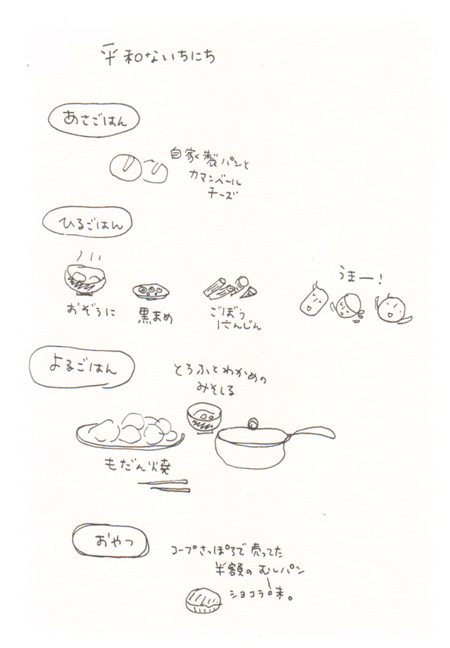 平和ないちにち
あさごはん
自家製パンと
カマンベール
チーズ
ひるごはん
おぞうに
黒まめ
ごぼう
にんじん
うまー!
よるごはん
とうふとわかめの
みそしる
もだん焼
おやつ
コープさっぽろで売ってた
半額のむしパン
ショコラ味。